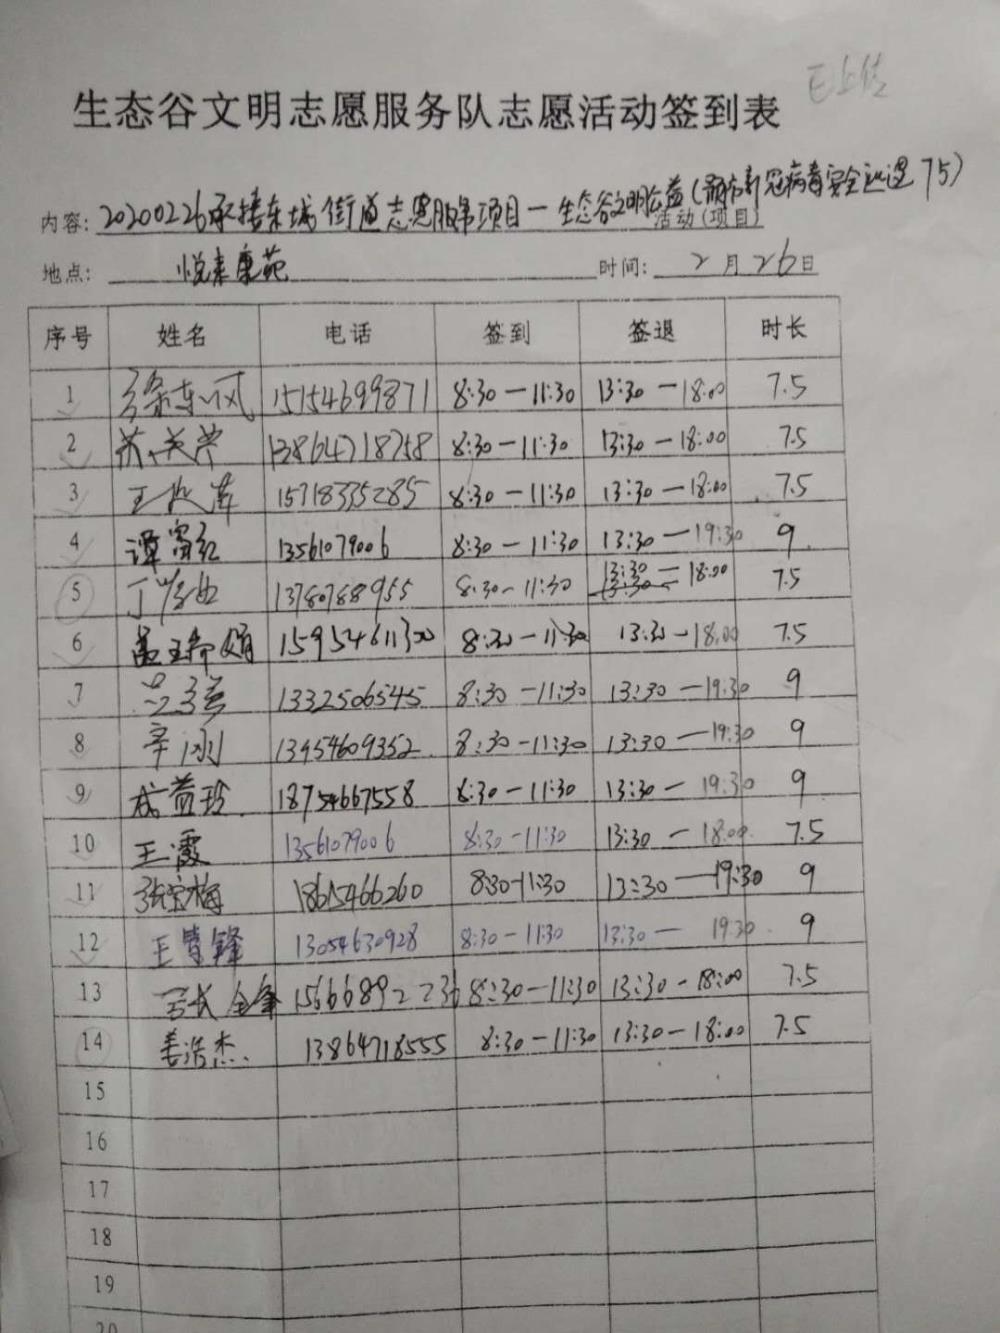 已上传
生态谷文明志愿服务队志愿活动签到表
内容: 20200226承接东城街道志愿服务项目一生态谷文明公益(新冠病毒安全 75) 活动(项目)
地点: 悦来康苑 时间: 2月26日
序号 姓名 电话 签到 签退 时长
1 徐东风 15154699871 8:30-11:30 13:30-18:00 7.5
2 13864718758 8:30-11:30 13:30-18:00 7.5
3 王 15718335285 8:30-11:30 13:30-18:00 7.5
4 谭富红 13561079006 8:30-11:30 13:30-19:30 9
5 丁 13780788955 8:30-11:30 13:30-18:00 7.5
6 孟 娟 15954611300 8:30-11:30 13:30-18:00 7.5
7 1332506545 8:30-11:30 13:30-19:30 9
8 辛刚 13954609352 8:30-11:30 13:30-19:30 9
9 成益玲 18754667558 8:30-11:30 13:30-19:30 9
10 王霞 13561079006 8:30-11:30 13:30-18:00 7.5
11 张宝梅 18615466260 8:30-11:30 13:30-19:30 9
12 王慧锋 13054630928 8:30-11:30 13:30-19:30 9
13 15666892236 8:30-11:30 13:30-18:00 7.5
14 姜浩杰 13864718555 8:30-11:30 13:30-18:00 7.5
15
16
17
18
19
20